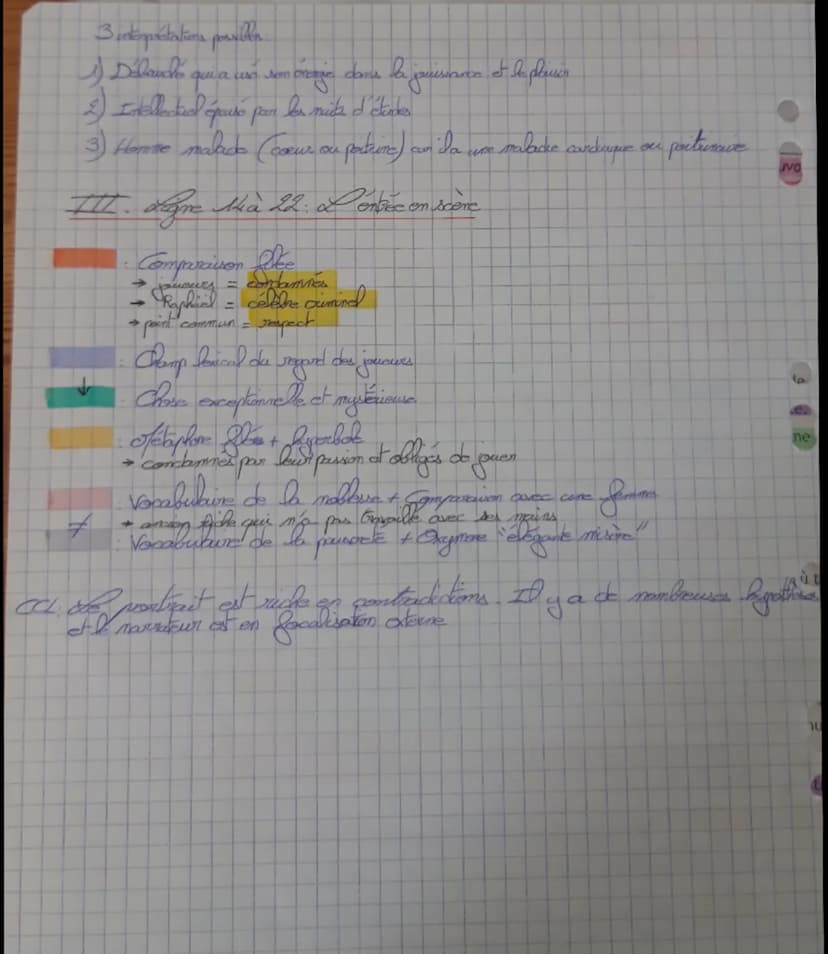 3 interprétations possibles
1) Débauché qui a usé son énergie dans la jouissance et le plaisir
2) Intellectuel épuisé par les nuits d'études
3) Homme malade (coeur ou poitrine) une maladie cardiaque ou
III. Ligne 14 à 22 : L'entrée en scène
: Comparaison filée
→ joueurs = condamnés
→ Raphaël = célèbre criminel
→ point commun = respect
: Champ lexical du regard des joueurs
↓ : Chose exceptionnelle et mystérieuse
: Métaphore filée + hyperbole
→ condamnés par leur passion et obligés de jouer
: Vocabulaire de la noblesse + Comparaison avec une femme
→ ancien riche qui n'a pas travaillé avec ses mains
≠ : Vocabulaire de la pauvreté + Oxymore "élégante misère"
CCL : Le portrait est riche en contradictions. Il y a de nombreuses hypothèses
et le narrateur est en focalisation externe
NO
e
ne